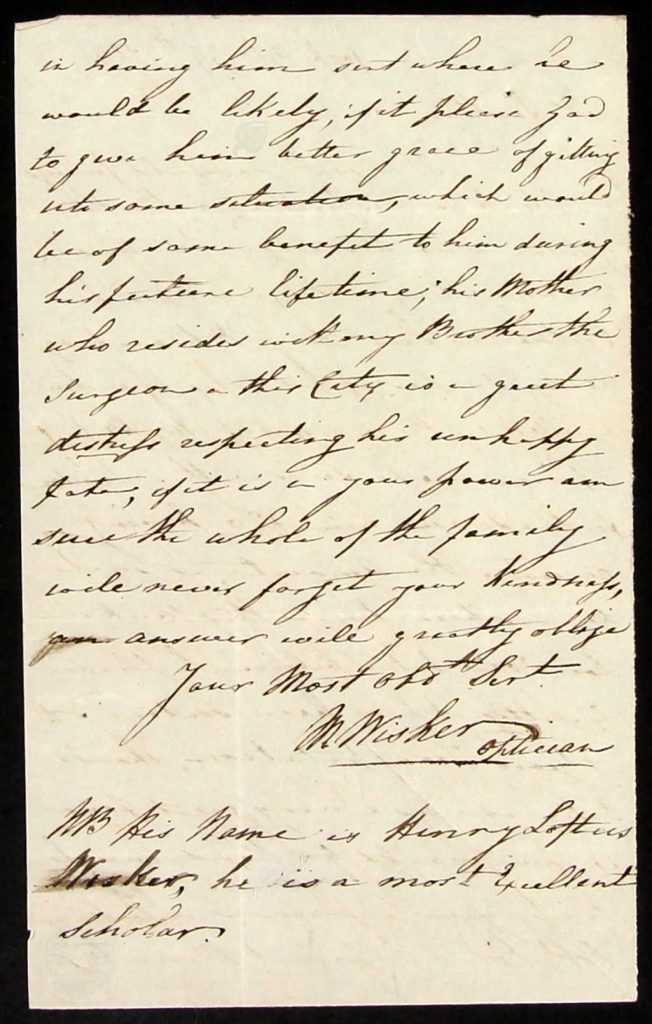 in having him sent where he
would be likely, if it please God
to give him better grace of gitting
into some situation, which would
be of some benefit to him during
his future lifetime; his Mother
who resides with my Brother the
Surgeon in this City is in great
distress respecting his unhappy
fate, if it is in your power am
sure the whole of the family
wile never forget your kindness,
an answer wile greatly oblige
Your Most Obdt Sert
M Wisker
Optician
NB His Name is Henry Loftus
Wisker, he is a most Excellent
Scholar.